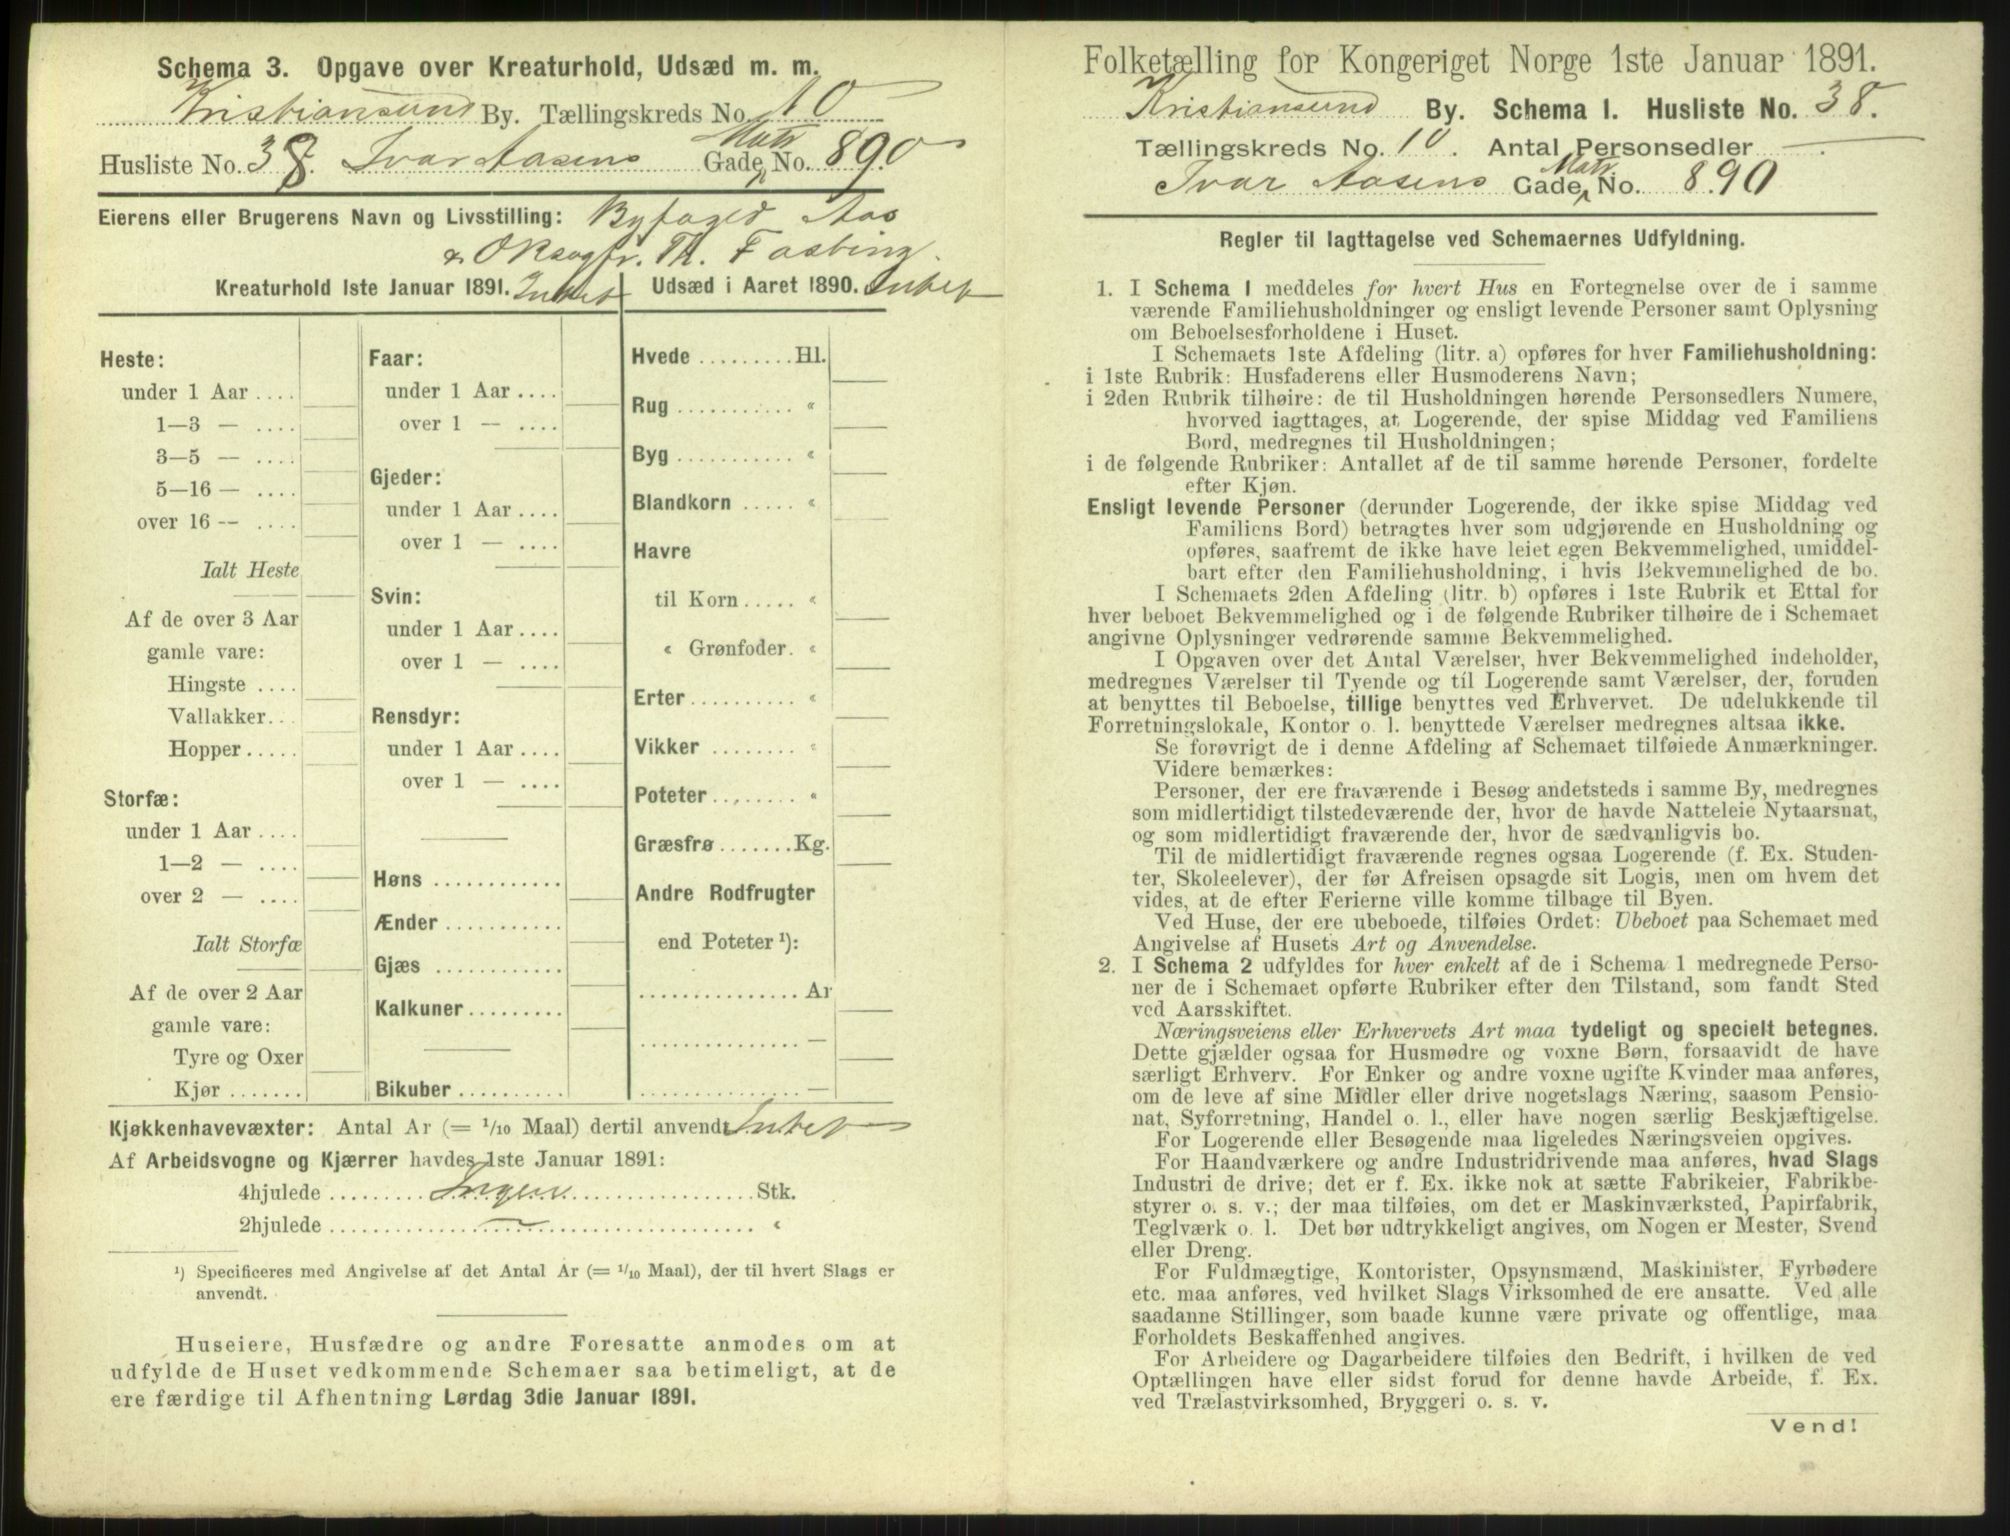 Schema 3. Opgave over Kreaturhold, Udsæd m. m.
Kristiansund By. Tællingskreds No. 10
Husliste No. 38. Ivar Aasens Gade, Matr No. 890
Eierens eller Brugerens Navn og Livsstilling: Byfoged Aas
& ORsagfr. Th. Fasting.
Kreaturhold 1ste Januar 1891. Intet
Udsæd i Aaret 1890. Intet
Heste:
under 1 Aar ....
1—3 — ....
3—5 — ....
5—16 — ....
over 16 — ....
Ialt Heste
Af de over 3 Aar
gamle vare:
Hingste ....
Vallakker...
Hopper .....
Storfæ:
under 1 Aar ....
1—2 — ....
over 2 — ....
Ialt Storfæ
Af de over 2 Aar
gamle vare:
Tyre og Oxer
Kjør .......
Faar:
under 1 Aar ....
over 1 — ....
Gjeder:
under 1 Aar ....
over 1 — ....
Svin:
under 1 Aar ....
over 1 — ....
Rensdyr:
under 1 Aar ....
over 1 — ....
Høns ............
Ænder ...........
Gjæs ............
Kalkuner.........
Bikuber ..........
Hvede .........Hl.
Rug ........... «
Byg ........... «
Blandkorn ..... «
Havre
til Korn ..... «
« Grønfoder. «
Erter .......... «
Vikker ........ «
Poteter ........ «
Græsfrø.......Kg.
Andre Rodfrugter
end Poteter ¹):
............... Ar
............... —
............... —
Kjøkkenhavevæxter: Antal Ar (= 1/10 Maal) dertil anvendt Intet
Af Arbeidsvogne og Kjærrer havdes 1ste Januar 1891:
4hjulede ......... Ingen ................. Stk.
2hjulede ......... — ................. «
¹) Specificeres med Angivelse af det Antal Ar (= 1/10 Maal), der til hvert Slags er
anvendt.
Huseiere, Husfædre og andre Foresatte anmodes om at
udfylde de Huset vedkommende Schemaer saa betimeligt, at de
ere færdige til Afhentning Lørdag 3die Januar 1891.
Folketælling for Kongeriget Norge 1ste Januar 1891.
Kristiansund By. Schema I. Husliste No. 38.
Tællingskreds No. 10. Antal Personsedler — .
Ivar Aasens Gade, Matr No. 890
Regler til Iagttagelse ved Schemaernes Udfyldning.
1. I Schema 1 meddeles for hvert Hus en Fortegnelse over de i samme
værende Familiehusholdninger og ensligt levende Personer samt Oplysning
om Beboelsesforholdene i Huset.
I Schemaets 1ste Afdeling (litr. a) opføres for hver Familiehusholdning:
i 1ste Rubrik: Husfaderens eller Husmoderens Navn;
i 2den Rubrik tilhøire: de til Husholdningen hørende Personsedlers Numere,
hvorved iagttages, at Logerende, der spise Middag ved Familiens
Bord, medregnes til Husholdningen;
i de følgende Rubriker: Antallet af de til samme hørende Personer, fordelte
efter Kjøn.
Ensligt levende Personer (derunder Logerende, der ikke spise Middag ved
Familiens Bord) betragtes hver som udgjørende en Husholdning og
opføres, saafremt de ikke have leiet egen Bekvemmelighed, umiddel-
bart efter den Familiehusholdning, i hvis Bekvemmelighed de bo.
I Schemaets 2den Afdeling (litr. b) opføres i 1ste Rubrik et Ettal for
hver beboet Bekvemmelighed og i de følgende Rubriker tilhøire de i Schemaet
angivne Oplysninger vedrørende samme Bekvemmelighed.
I Opgaven over det Antal Værelser, hver Bekvemmelighed indeholder,
medregnes Værelser til Tyende og til Logerende samt Værelser, der, foruden
at benyttes til Beboelse, tillige benyttes ved Erhvervet. De udelukkende til
Forretningslokale, Kontor o. l. benyttede Værelser medregnes altsaa ikke.
Se forøvrigt de i denne Afdeling af Schemaet tilføiede Anmærkninger.
Videre bemærkes:
Personer, der ere fraværende i Besøg andetsteds i samme By, medregnes
som midlertidigt tilstedeværende der, hvor de havde Natteleie Nytaarsnat,
og som midlertidigt fraværende der, hvor de sædvanligvis bo.
Til de midlertidigt fraværende regnes ogsaa Logerende (f. Ex. Studen-
ter, Skoleelever), der før Afreisen opsagde sit Logis, men om hvem det
vides, at de efter Ferierne ville komme tilbage til Byen.
Ved Huse, der ere ubeboede, tilføies Ordet: Ubeboet paa Schemaet med
Angivelse af Husets Art og Anvendelse.
2. I Schema 2 udfyldes for hver enkelt af de i Schema 1 medregnede Perso-
ner de i Schemaet opførte Rubriker efter den Tilstand, som fandt Sted
ved Aarsskiftet.
Næringsveiens eller Erhvervets Art maa tydeligt og specielt betegnes.
Dette gjælder ogsaa for Husmødre og voxne Børn, forsaavidt de have
særligt Erhverv. For Enker og andre voxne ugifte Kvinder maa anføres,
om de leve af sine Midler eller drive nogetslags Næring, saasom Pensio-
nat, Syforretning, Handel o. l., eller have nogen særlig Beskjæftigelse.
For Logerende eller Besøgende maa ligeledes Næringsveien opgives.
For Haandværkere og andre Industridrivende maa anføres, hvad Slags
Industri de drive; det er f. Ex. ikke nok at sætte Fabrikeier, Fabrikbe-
styrer o. s. v.; der maa tilføies, om det er Maskinværksted, Papirfabrik,
Teglværk o. l. Det bør udtrykkeligt angives, om Nogen er Mester, Svend
eller Dreng.
For Fuldmægtige, Kontorister, Opsynsmænd, Maskinister, Fyrbødere
etc. maa anføres, ved hvilket Slags Virksomhed de ere ansatte. Ved alle
saadanne Stillinger, som baade kunne være private og offentlige, maa
Forholdets Beskaffenhed angives.
For Arbeidere og Dagarbeidere tilføies den Bedrift, i hvilken de ved
Optællingen have eller sidst forud for denne havde Arbeide, f. Ex.
ved Trælastvirksomhed, Bryggeri o. s. v.
Vend!